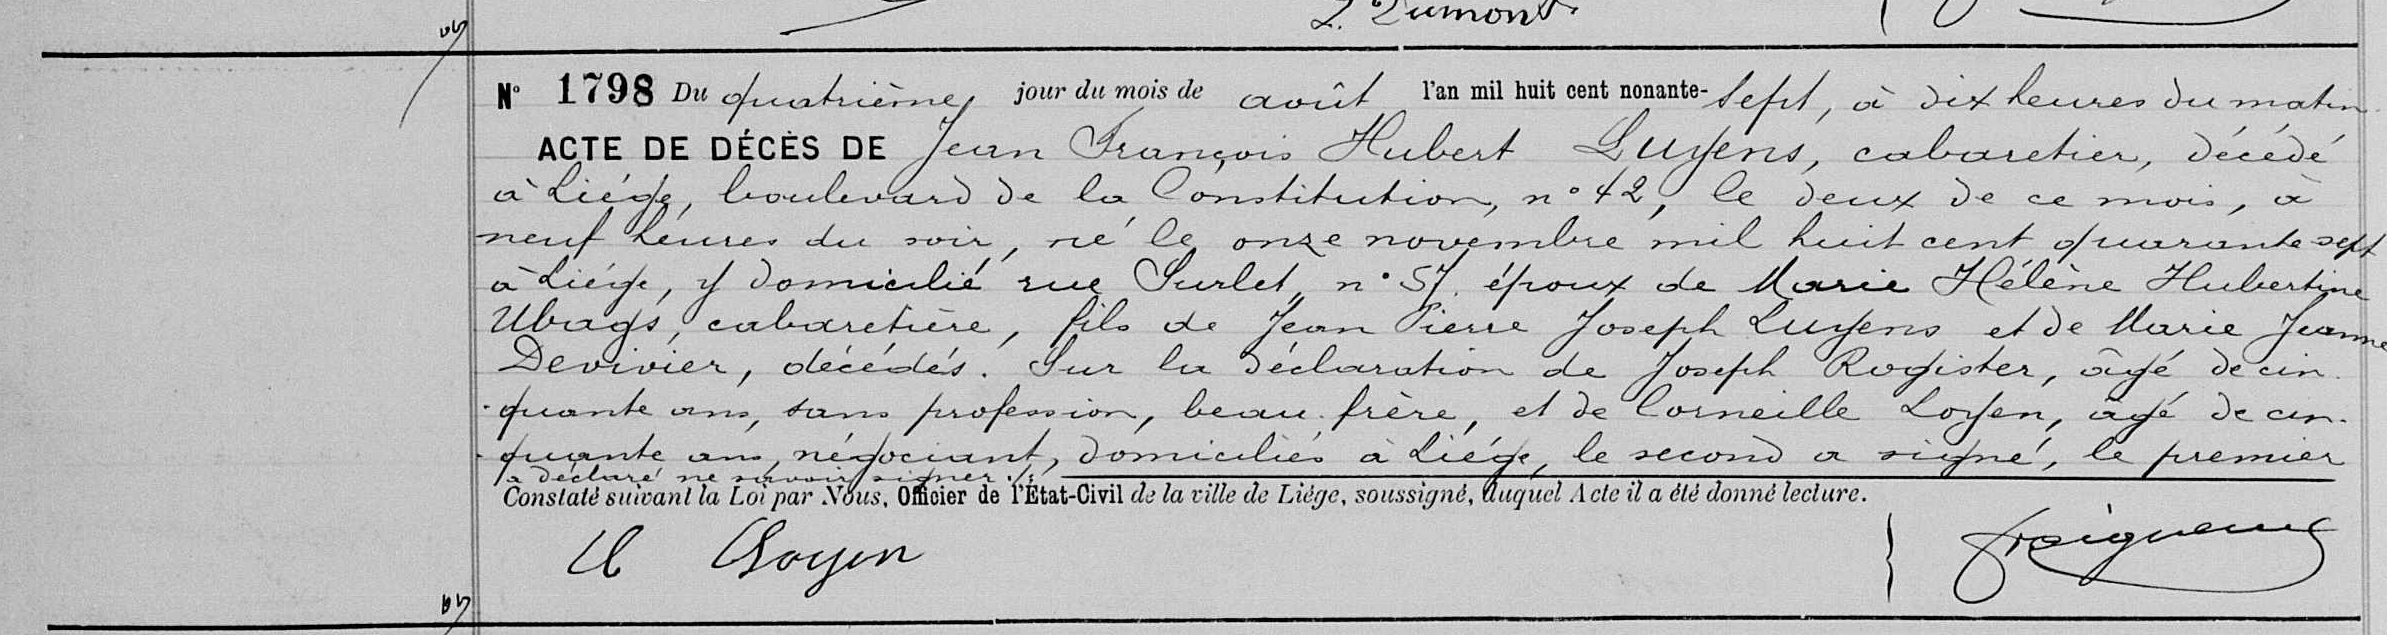 L. Dumont
N° 1798 Du quatrième jour du mois de août l'an mil huit cent nonante-sept, à dix heures du matin
ACTE DE DÉCÈS DE Jean François Hubert Luyens, cabaretier, décédé
à Liége, boulevard de la Constitution, n° 42, le deux de ce mois, à
neuf heures du soir, né le onze novembre mil huit cent quarante-sept
à Liége, y domicilié rue Surlet, n° 57. époux de Marie Hélène Hubertine
Ubags, cabaretière, fils de Jean Pierre Joseph Luyens et de Marie Jeanne
Devivier, décédés. Sur la déclaration de Joseph Rogister, âgé de cin-
quante ans, sans profession, beau-frère, et de Corneille Loyen, âgé de cin-
quante ans, négociant, domiciliés à Liége, le second a signé, le premier
a déclaré ne savoir signer ./.
Constaté suivant la Loi par Nous, Officier de l'État-Civil de la ville de Liége, soussigné, duquel Acte il a été donné lecture.
C Loyen